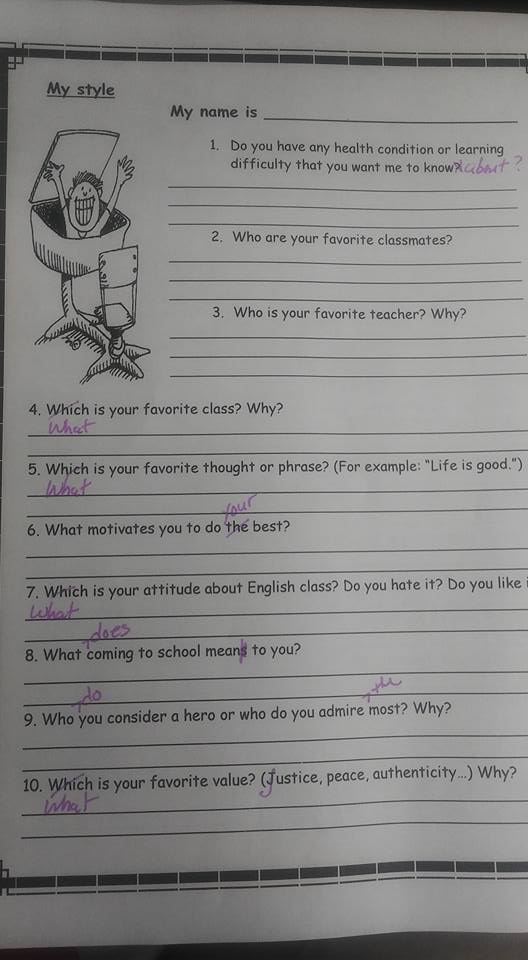 My style
My name is
1. Do you have any health condition or learning
difficulty that you want me to know? about?
2. Who are your favorite classmates?
3. Who is your favorite teacher? Why?
4. Which is your favorite class? Why?
What
5. Which is your favorite thought or phrase? (For example: "Life is good.")
What
your
6. What motivates you to do the best?
7. Which is your attitude about English class? Do you hate it? Do you like i
What
does
8. What coming to school means to you?
do
the
9. Who you consider a hero or who do you admire most? Why?
10. Which is your favorite value? (Justice, peace, authenticity...) Why?
What